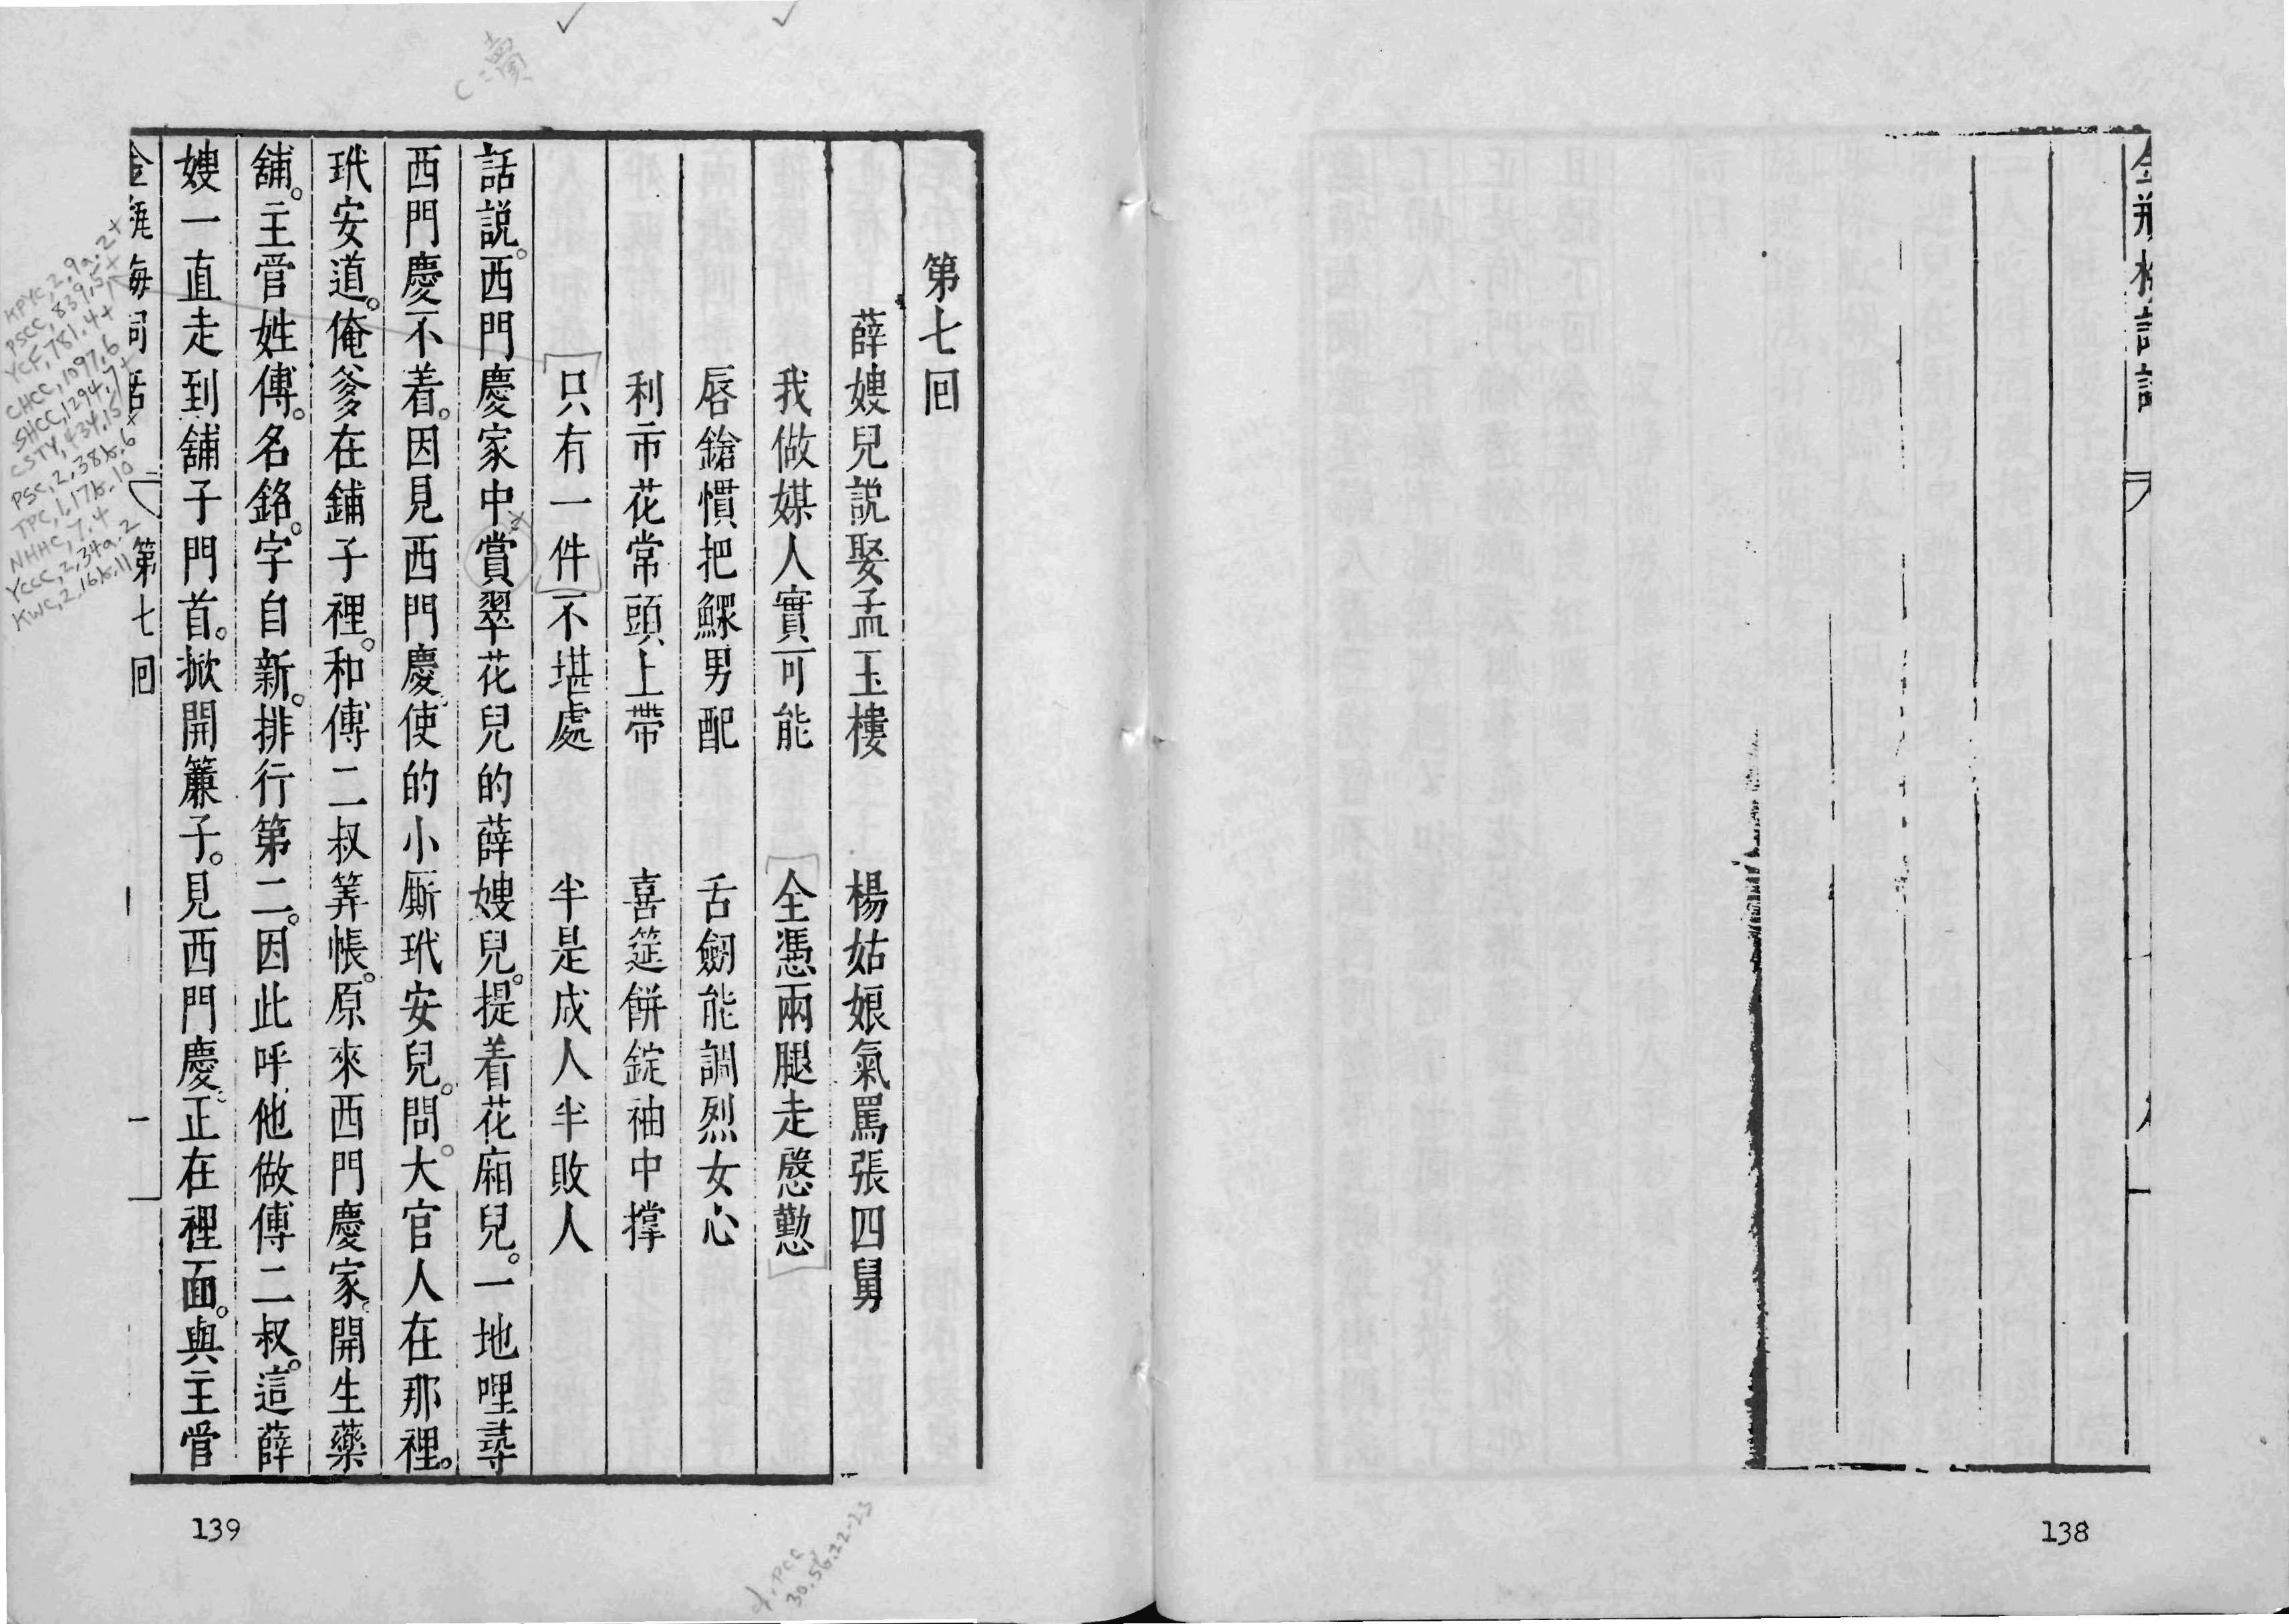 金瓶梅詞話
138
第七回
薛嫂兒説娶孟玉樓　楊姑娘氣罵張四舅
我做媒人實可能　全憑兩腿走慇懃
唇鎗慣把鰥男配　舌劒能調烈女心
利市花常頭上帶　喜筵餅錠袖中撑
只有一件不堪處　半是成人半敗人
話説。西門慶家中賞翠花兒的薛嫂兒。提着花廂兒。一地哩尋
西門慶不着。因見西門慶使的小厮玳安兒。問。大官人在那裡。
玳安道。俺爹在鋪子裡。和傅二叔筭帳。原來西門慶家。開生藥
舖。主管姓傅。名銘。字自新。排行第二。因此呼他做傅二叔。這薛
嫂一直走到舖子門首。掀開簾子。見西門慶。正在裡面。與主管
金瓶梅詞話　第七回　一
139
C:賣
KPYC,2,9a.2+
PSCC,839.5+
YCF,781.4+
CHCC,1097.6
SHCC,1294.7+
CSTY,434.15
PSC,2,38b.6+
TPC,1,17b.10
NHHC,7.4
YCCC,2,34a.2
KWC,2,16b.11
30.5b.22-23